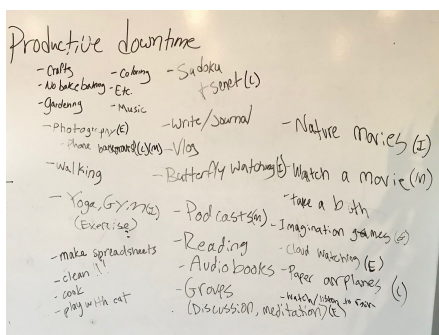 Productive downtime
- Crafts
- No bake baking
- Gardening
- Coloring
- Etc.
- Music
- Photography (E)
- Phone background (L)(M)
- Walking
- Yoga, GYM (I)
(Exercise)
- make spreadsheets
- clean !!
- cook
- play with cat
- Sudoku
+ Senet (L)
- Write/Journal
- Vlog
- Butterfly watching (I)
- Podcasts (M)
- Reading
- Audiobooks
- Groups
(Discussion, meditation) (E)
- Nature movies (I)
- Watch a movie (M)
- take a bath
- Imagination games
- Cloud watching (E)
- Paper airplanes (L)
- Watch/listen to rain